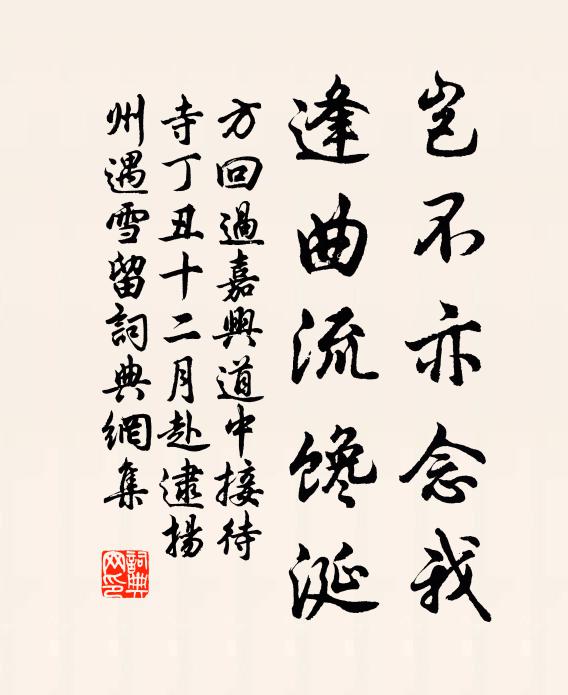 岂不亦念我
逢曲流馋涎
方回過嘉興道中接待
寺丁丑十二月赴逮揚
州遇雪留詞典網集
詞典
网印